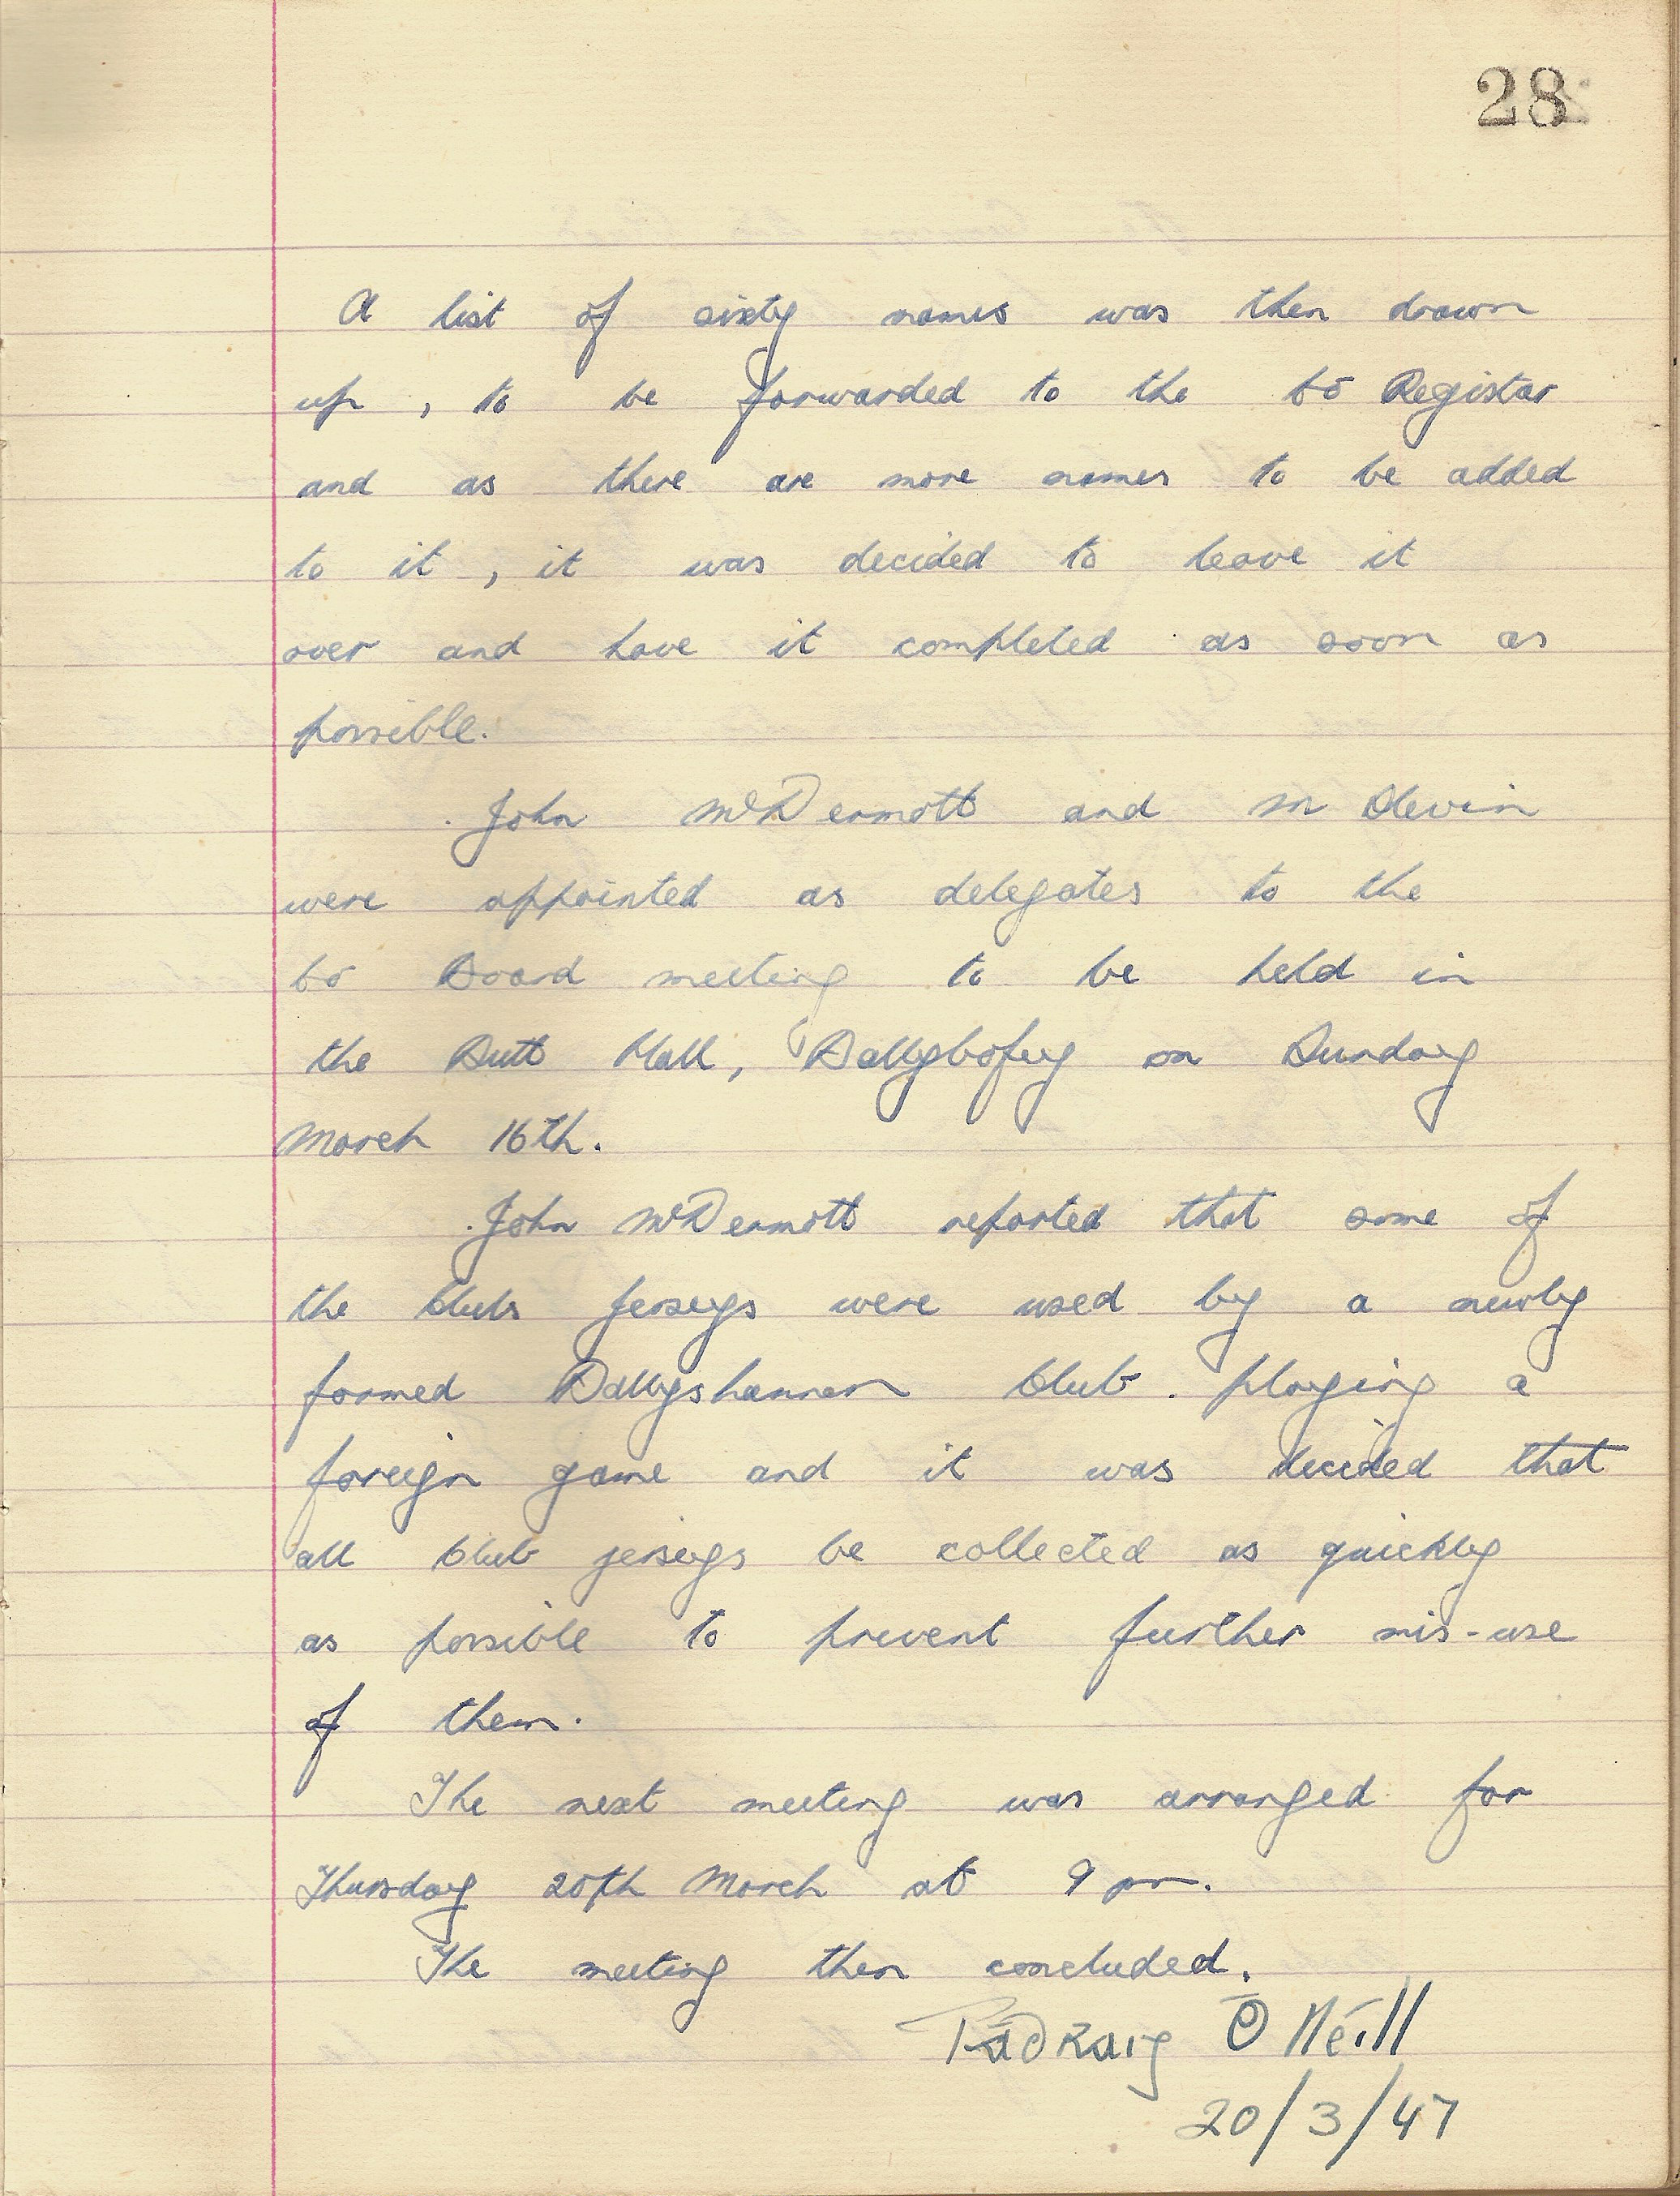 28
A list of sixty names was then drawn
up, to be forwarded to the Co Registar
and as there are more names to be added
to it, it was decided to leave it
over and have it completed as soon as
possible.
John McDermott and M Slevin
were appointed as delegates to the
Co Board meeting to be held in
the Butt Hall, Ballybofey on Sunday
March 16th.
John McDermott reported that some of
the Clubs jerseys were used by a newly
formed Ballyshannon Club. playing a
foreign game and it was decided that
all Club jerseys be collected as quickly
as possible to prevent further mis-use
of them.
The next meeting was arranged for
Thursday 20th March at 9 pm.
The meeting then concluded.
Pádraig Ó Néill
20/3/47